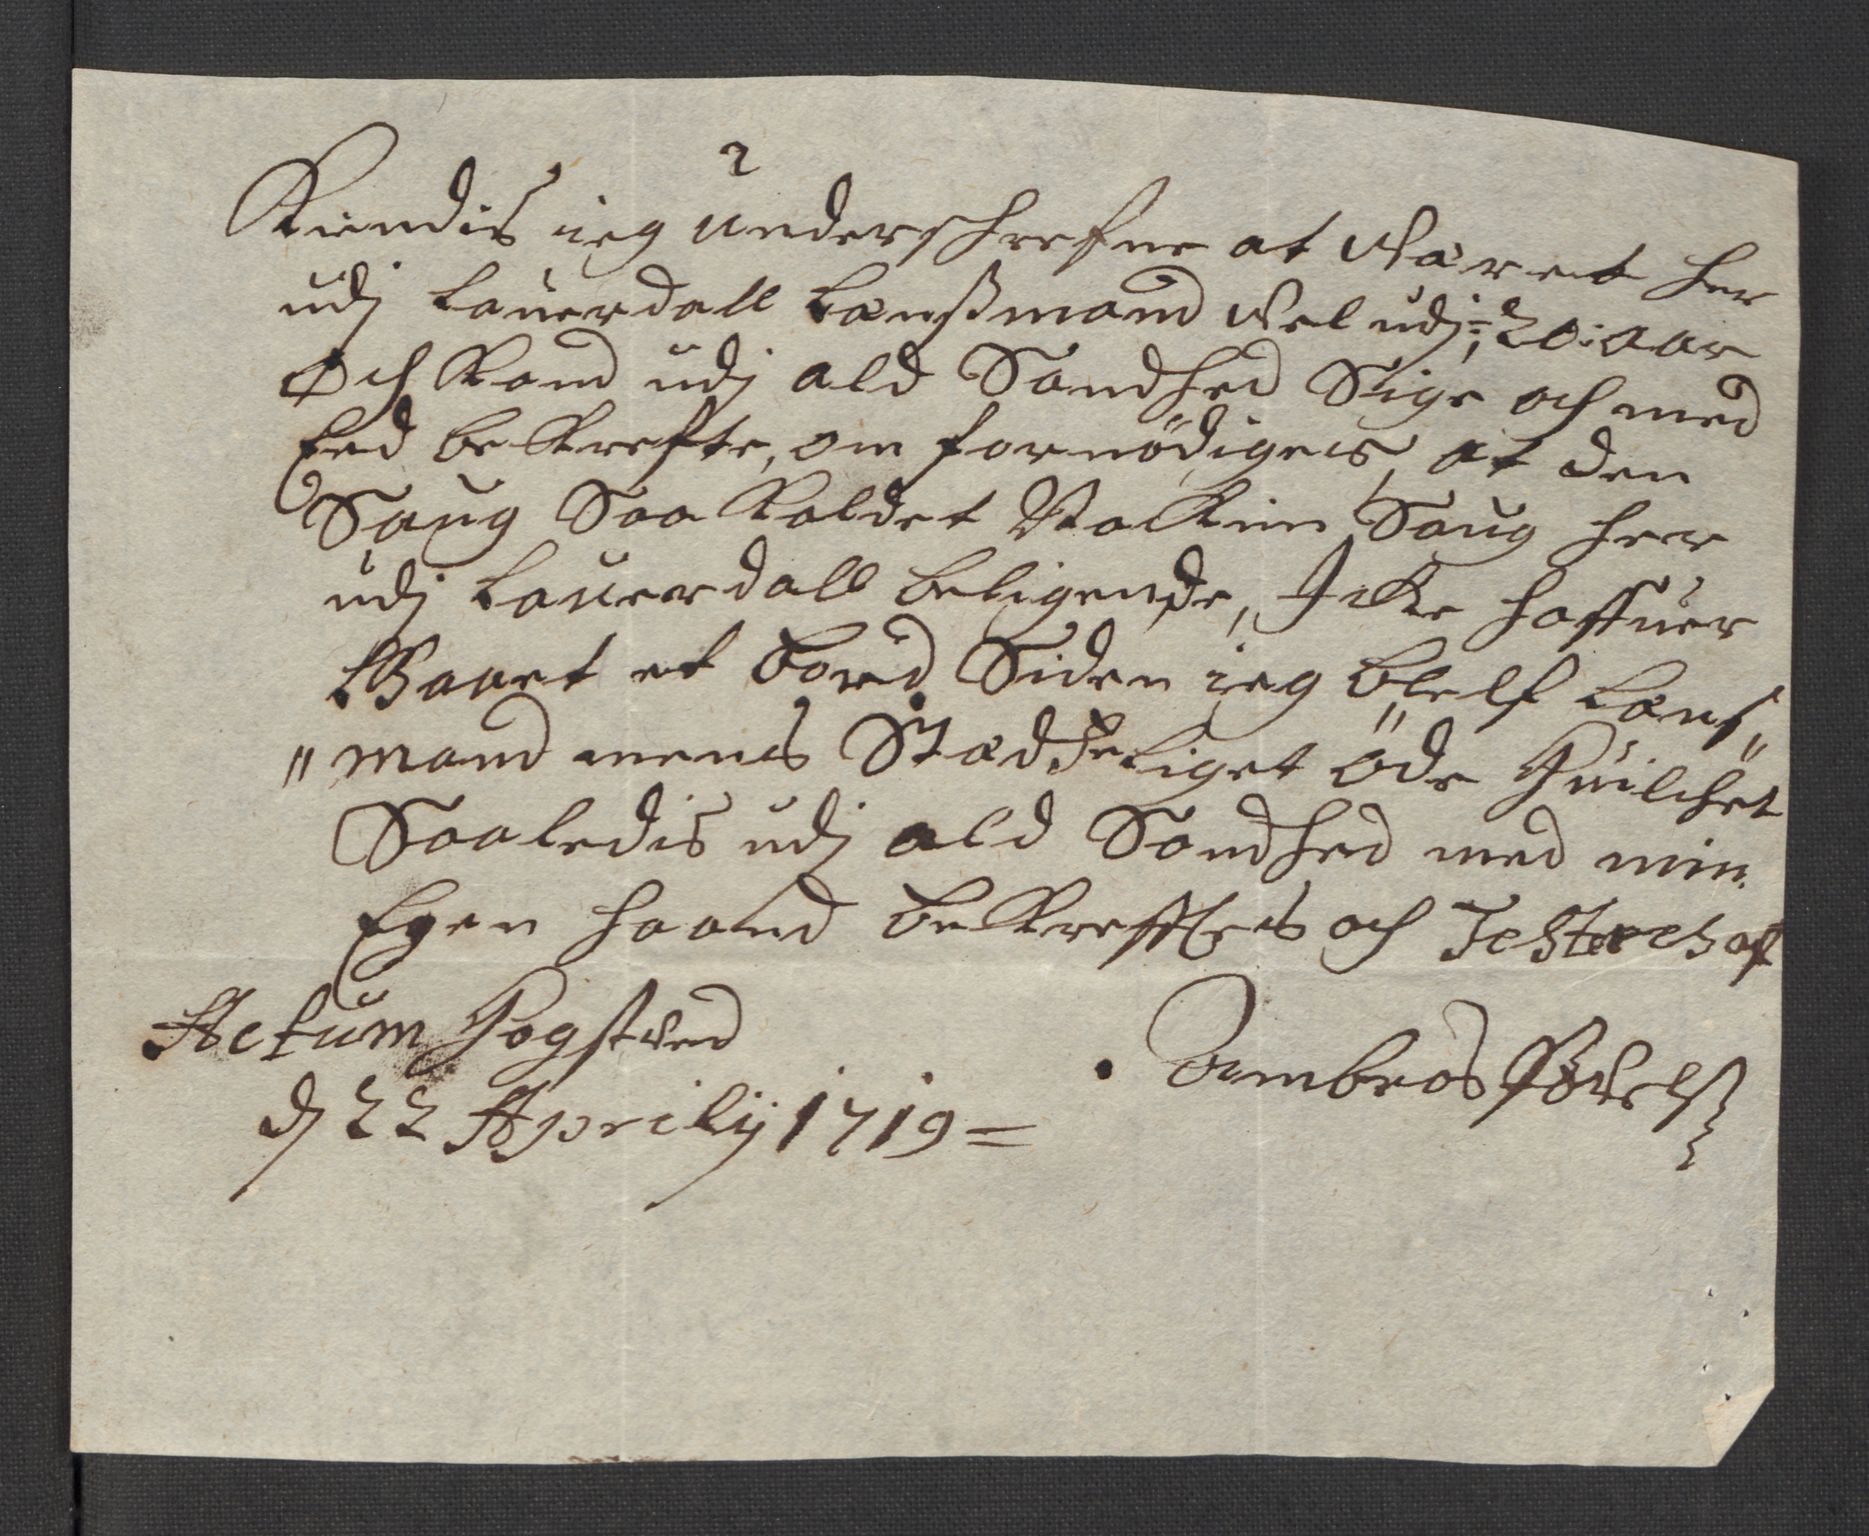 2
Kiendis ieg underschrefne at Været her
udj Lauerdall Lænßmand Vel udj 20: aar
Och Kand udj ald Sandhed Sige och med
Eed bekrefte, om fornödiges, at den
Saug Saa Kaldet Valkim Saug her
udj Lauerdall beligende, Icke haffuer
Skaaret et bord Siden ieg blef Læns„
„mand mens Stadtzeliget öde Huilchet
Saaledis udj ald Sandhed med min
Egen haand bekrefftes och Testeres af
Actum Hogstved
d 22 Aprilij 1719=
Ambros